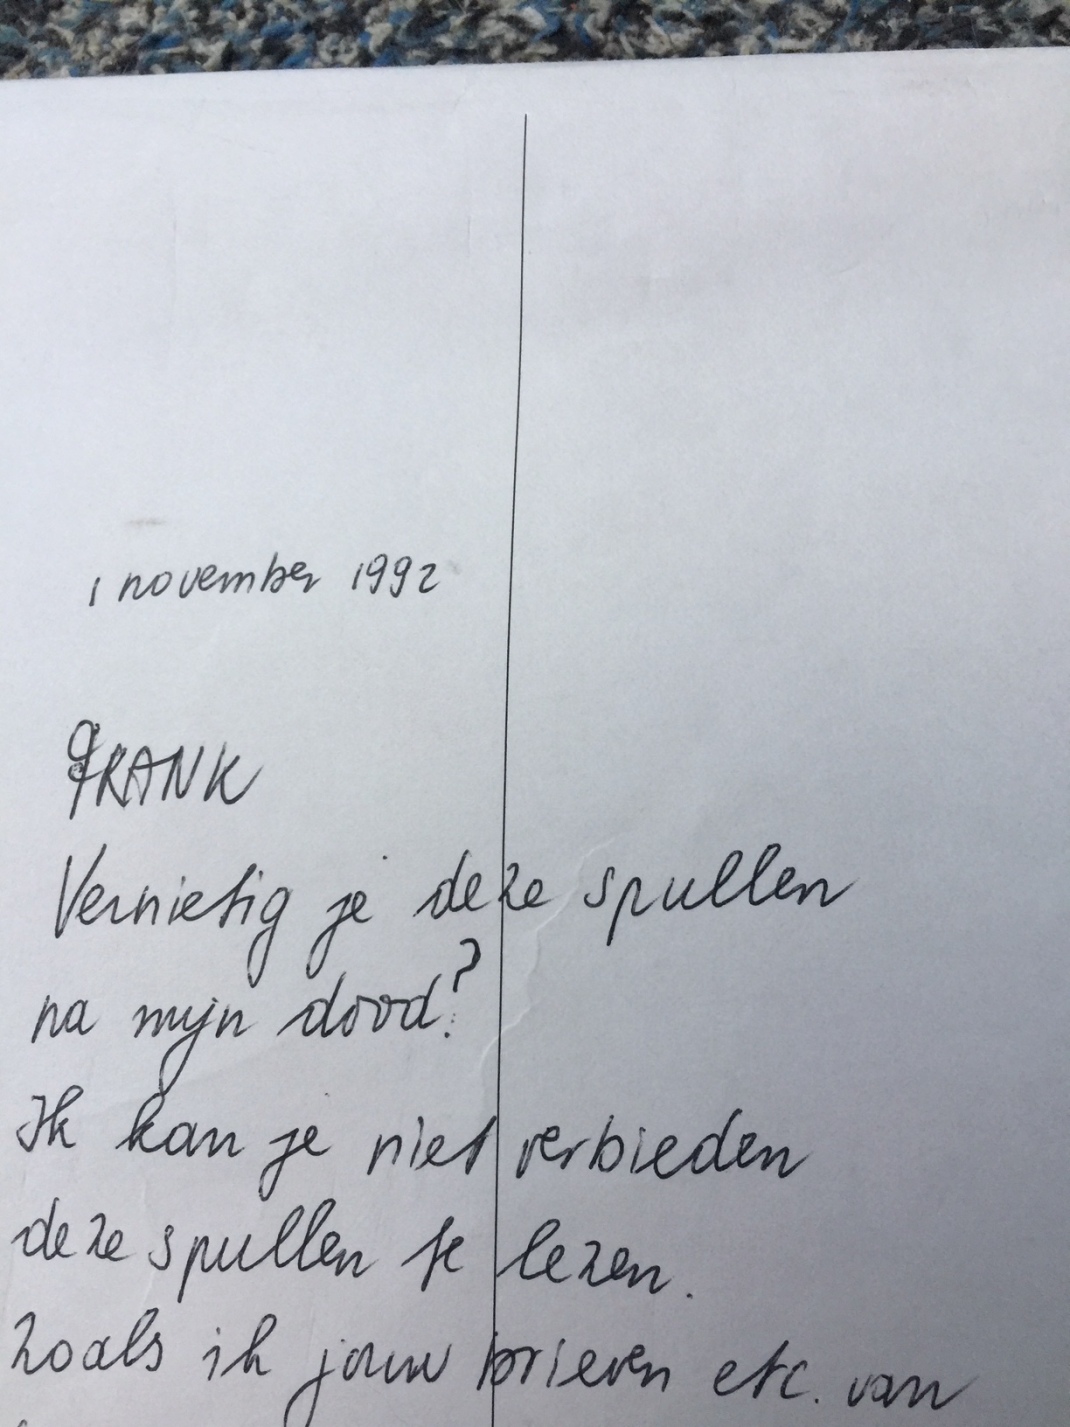 1 november 1992
FRANK
Vernietig je deze spullen
na mijn dood?
Ik kan je niet verbieden
deze spullen te lezen.
Zoals ik jouw brieven etc. van